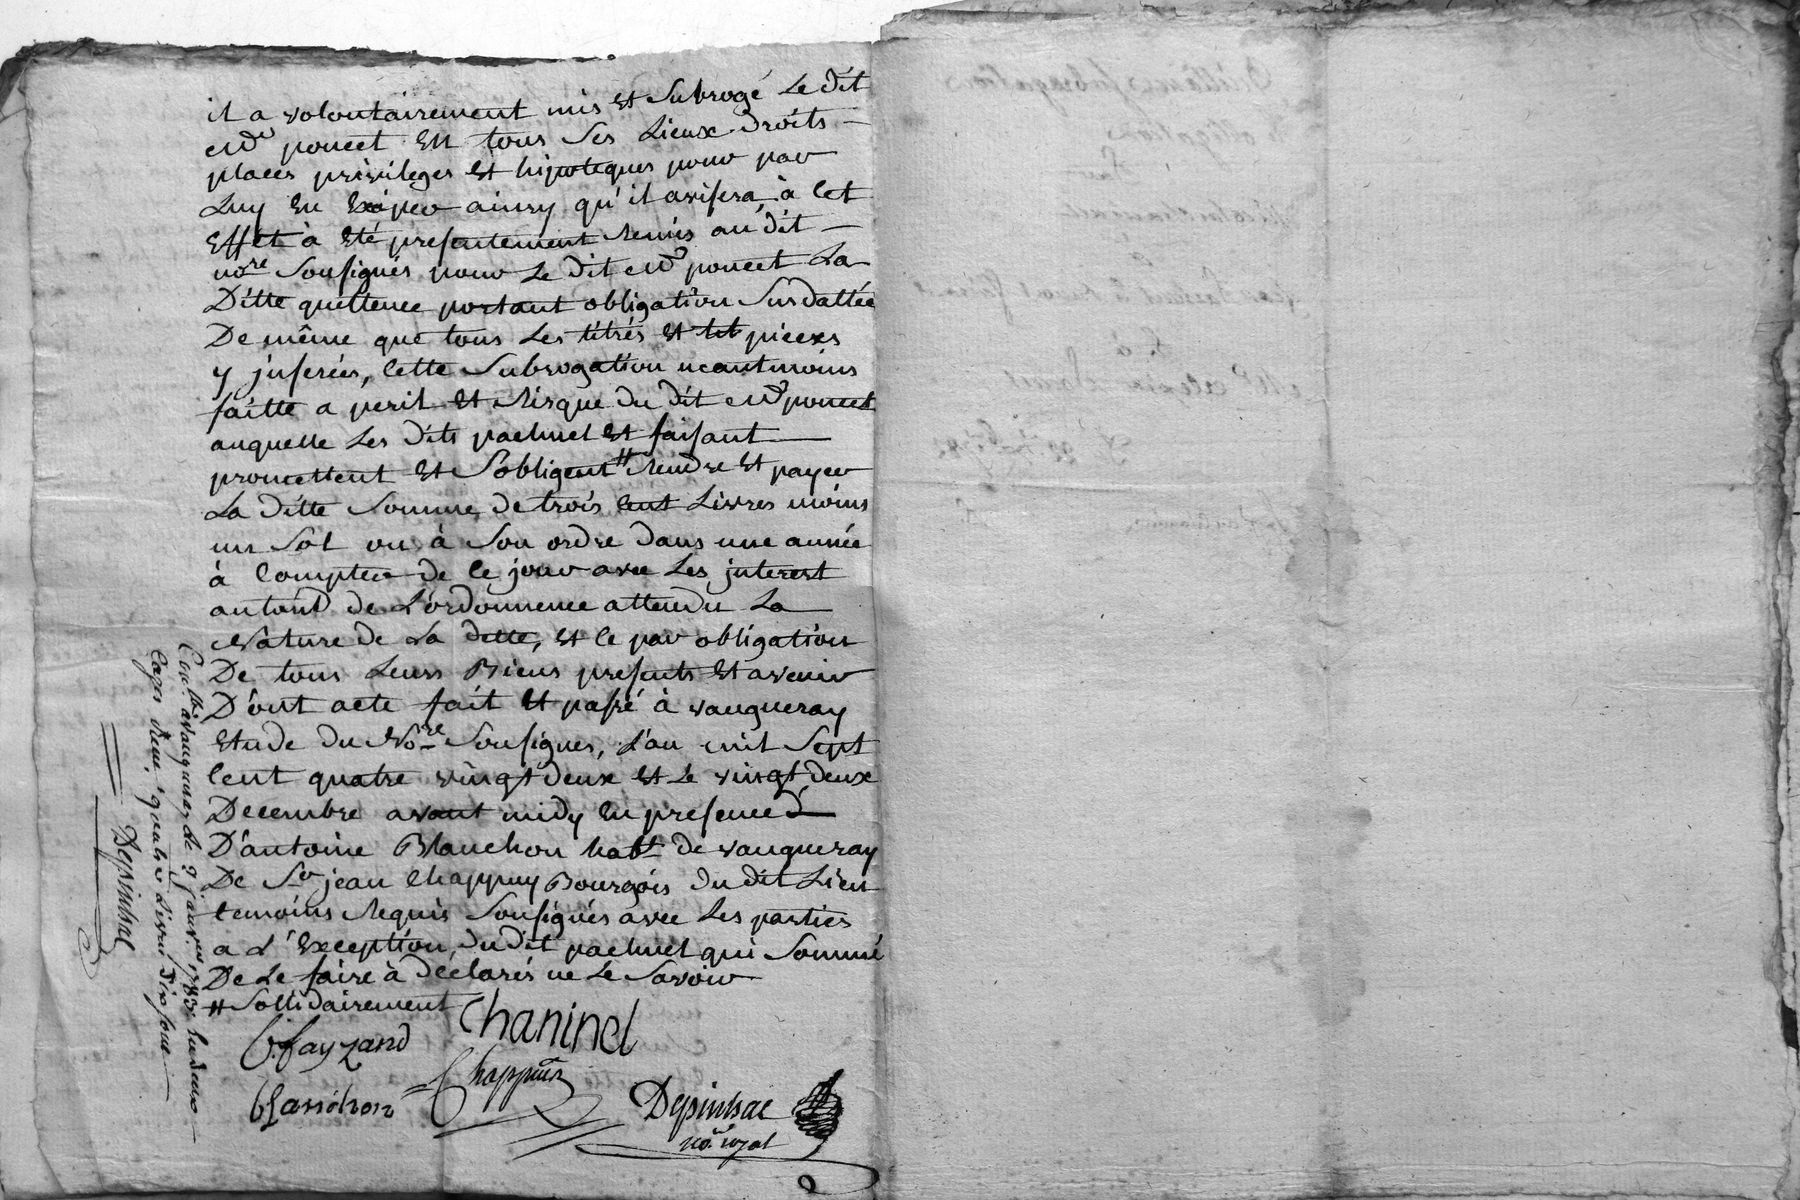 il a volontairement mis et Subrogé Le dit
Mr poncet En tous Ses Lieux droits
places privileges et hipoteques pour par
Luy En Exiper ainsy qu'il avisera, à cet
Effet à eté presentement Remis au dit
nore Sousignés pour Le dit Mr poncet La
Ditte quittence portant obligation Susdattée
De même que tous Les titrés et pieces
y jnserées, cette Subrogation neantmoins
faitte a peril et Risque du dit Mr poncet
auquelle Les dits pachmel et faisant
promettent et S'obligent # Rendre et payer
La ditte Somme de trois cent Livres moins
un Sol ou à Son ordre dans une année
à Compter de ce jour avec Les jnterest
autand de L'ordonnence attendu La
Nature de La dette, et ce par obligation
De tous Leurs Biens presents et avenir
D'ont acte fait et passé à vaugneray
Etude du Nore Sousignes, L'an mil Sept
Cent quatre vingt deux et Le vingt deux
Decembre avant midy En presence
D'antoine Blanchon habt de vaugneray
De Sr jean Chappuy Bourgois du dit Lieu
temoins Requis Sousignés avec Les parties
a L'Exception du dit pachmel qui Sommé
De Le faire à déclarés ne Le Savoir
# Sollidairement
Chaninel
fayzand
Chappuis
blanchon
Depinhac
no.re royal
a vaugneray le 9 janvier 1783
Reçu quatre Livres dix sous
Depinhac